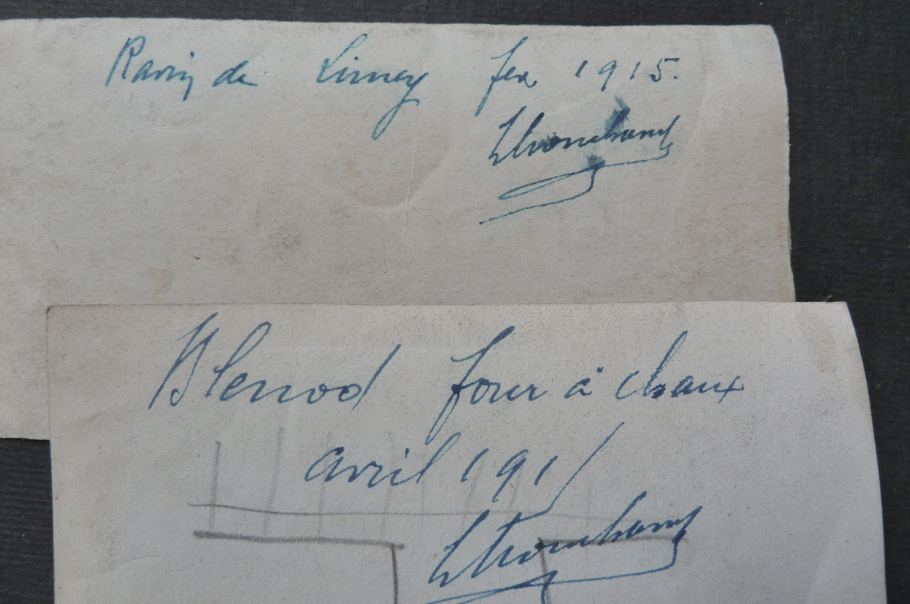 Ravin de Limey fev 1915.
Blenod four à chaux
avril 191